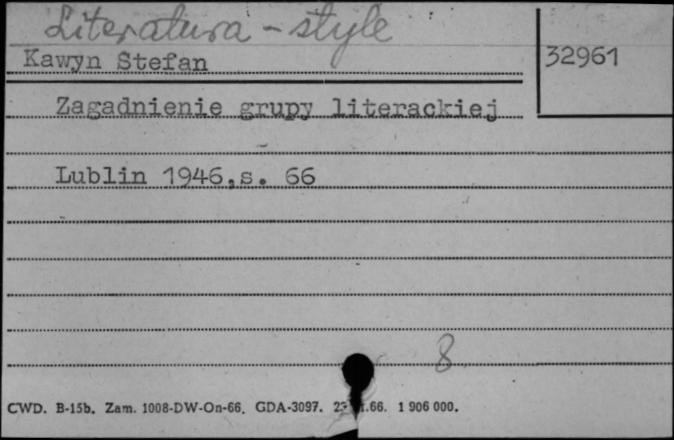 Literatura - style
Kawyn Stefan
32961
Zagadnienie grupy literackiej
Lublin 1946,s. 66
8
CWD. B-15b. Zam. 1008-DW-On-66. GDA-3097. .66. 1 906 000.